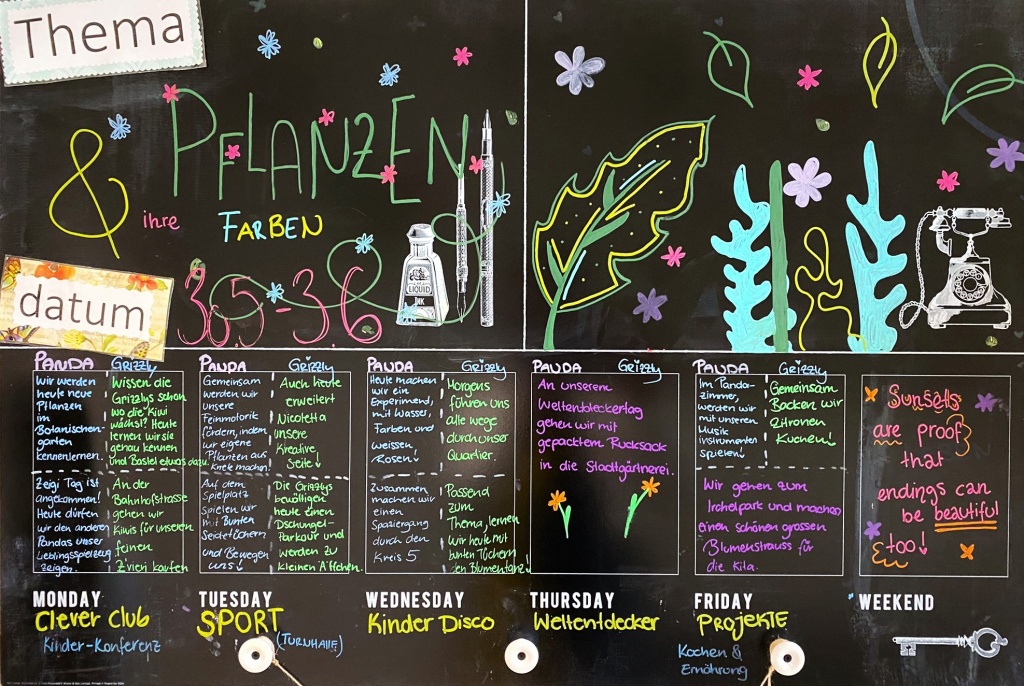 Thema
PFLANZEN
& ihre FARBEN
datum
30.5-3.6
LIQUID
INK
PANDA
Wir werden
heute neue
Pflanzen
im
Botanischen-
garten
kennenlernen.
Zeigi Tag ist
angekommen!
Heute dürfen
wir den anderen
Pandas unser
Lieblingsspielzeug
zeigen.
Grizzly
Wissen die
Grizzlys schon
wo die Kiwi
wächst? Heute
lernen wir sie
genau kennen
und Bastel etwas dazu.
An der
Bahnhofstrasse
gehen wir
Kiwis für unseren
feinen
Zvieri kaufen
PANDA
Gemeinsam
werden wir
unsere
Feinmotorik
fördern, indem
wir eigene
Pflanzen aus
Knete machen.
Auf dem
Spielplatz
spielen wir
mit Bunten
Seidetüchern
und Bewegen
uns!
Grizzly
Auch heute
erweitert
Nicoletta
unsere
Kreative
Seite!
Die Grizzlys
bewältigen
heute einen
Dschungel-
Parkour und
werden zu
kleinen Äffchen.
PANDA
Heute machen
wir ein
Experiment,
mit Wasser,
Farben und
weissen
Rosen!
Zusammen
machen wir
einen
Spaziergang
durch den
Kreis 5
Grizzly
Morgens
führen uns
alle wege
durch unser
Quartier.
Passend
zum
Thema, lernen
wir heute mit
bunten Tüchern
den Blumentanz!
PANDA Grizzly
An unserem
Weltentdeckertag
gehen wir mit
gepacktem Rucksack
in die Stadtgärtnerei.
PANDA
Im Panda-
zimmer,
werden wir
mit unseren
Musik
instrumenten
spielen!
Grizzly
Gemeinsam
Backen wir
Zitronen
Kuchen!
Wir gehen zum
Irchelpark und machen
einen schönen grossen
Blumenstrauss für
die Kita.
Sunsets
are proof
that
endings can
be beautiful
too!
MONDAY
Clever Club
Kinder-Konferenz
TUESDAY
SPORT
(TURNHALLE)
WEDNESDAY
Kinder Disco
THURSDAY
Weltentdecker
FRIDAY
PROJEKTE
Kochen &
Ernährung
WEEKEND